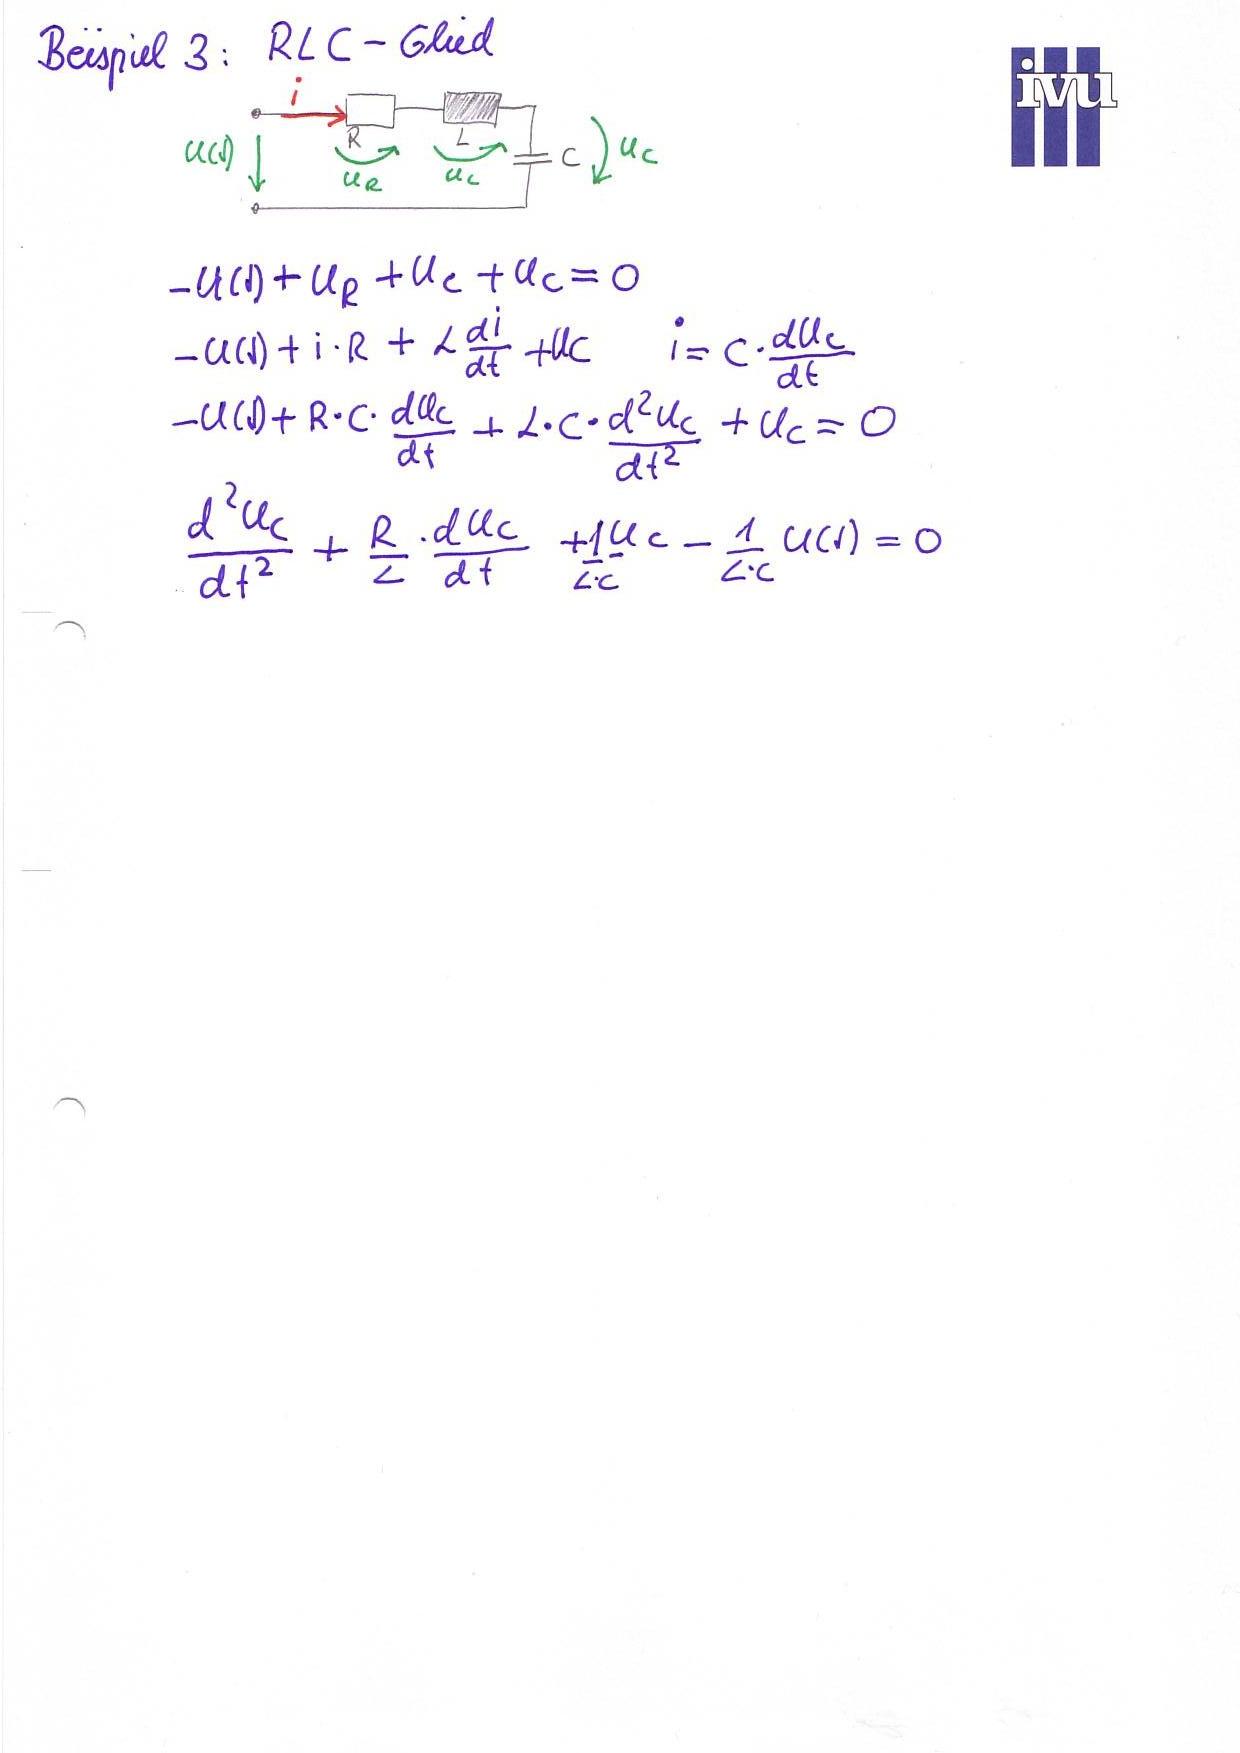 Beispiel 3: RLC-Glied
ivu
i
R
L
u(t)
uR
uL
C
uC
-u(t) + uR + uL + uC = 0
-u(t) + i·R + L di/dt + uC    i = C · duC/dt
-u(t) + R·C· duC/dt + L·C· d²uC/dt² + uC = 0
d²uC/dt² + R/L · duC/dt + 1/L·C uC - 1/L·C u(t) = 0